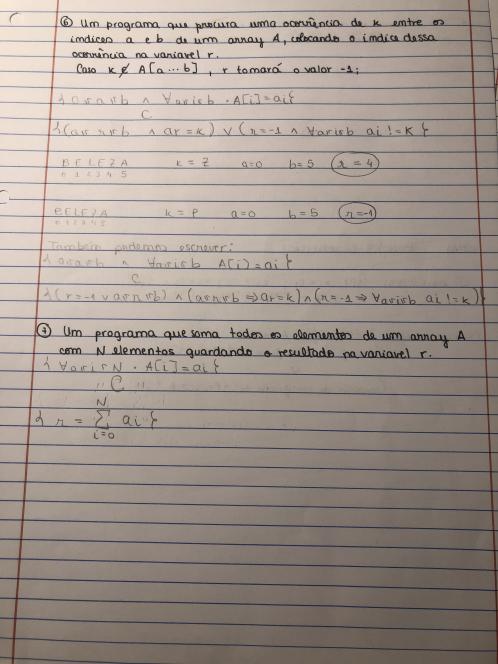 ⑥ Um programa que procura uma ocorrência de k entre os
índices a e b de um array A, colocando o índice dessa
ocorrência na variavel r.
Caso k ∉ A[a ... b], r tomará o valor -1;
{ 0≤a≤b ∧ ∀a≤i≤b . A[i] = ai }
C
{ (a≤r≤b ∧ ar = k) ∨ (r = -1 ∧ ∀a≤i≤b ai != k }
B E L E Z A k = Z a=0 b=5 r = 4
0 1 2 3 4 5
B E L E Z A k = P a=0 b=5 r=-1
0 1 2 3 4 5
Também podemos escrever:
{ 0≤a≤b ∧ ∀a≤i≤b A[i] = ai }
C
{ (r=-1 ∨ a≤r≤b) ∧ (a≤r≤b ⇒ ar = k) ∧ (r = -1 ⇒ ∀a≤i≤b ai != k) }
⑦ Um programa que soma todos os elementos de um array A
com N elementos guardando o resultado na variavel r.
{ ∀a≤i≤N . A[i] = ai }
" C "
N
{ r = ∑ ai }
i=0